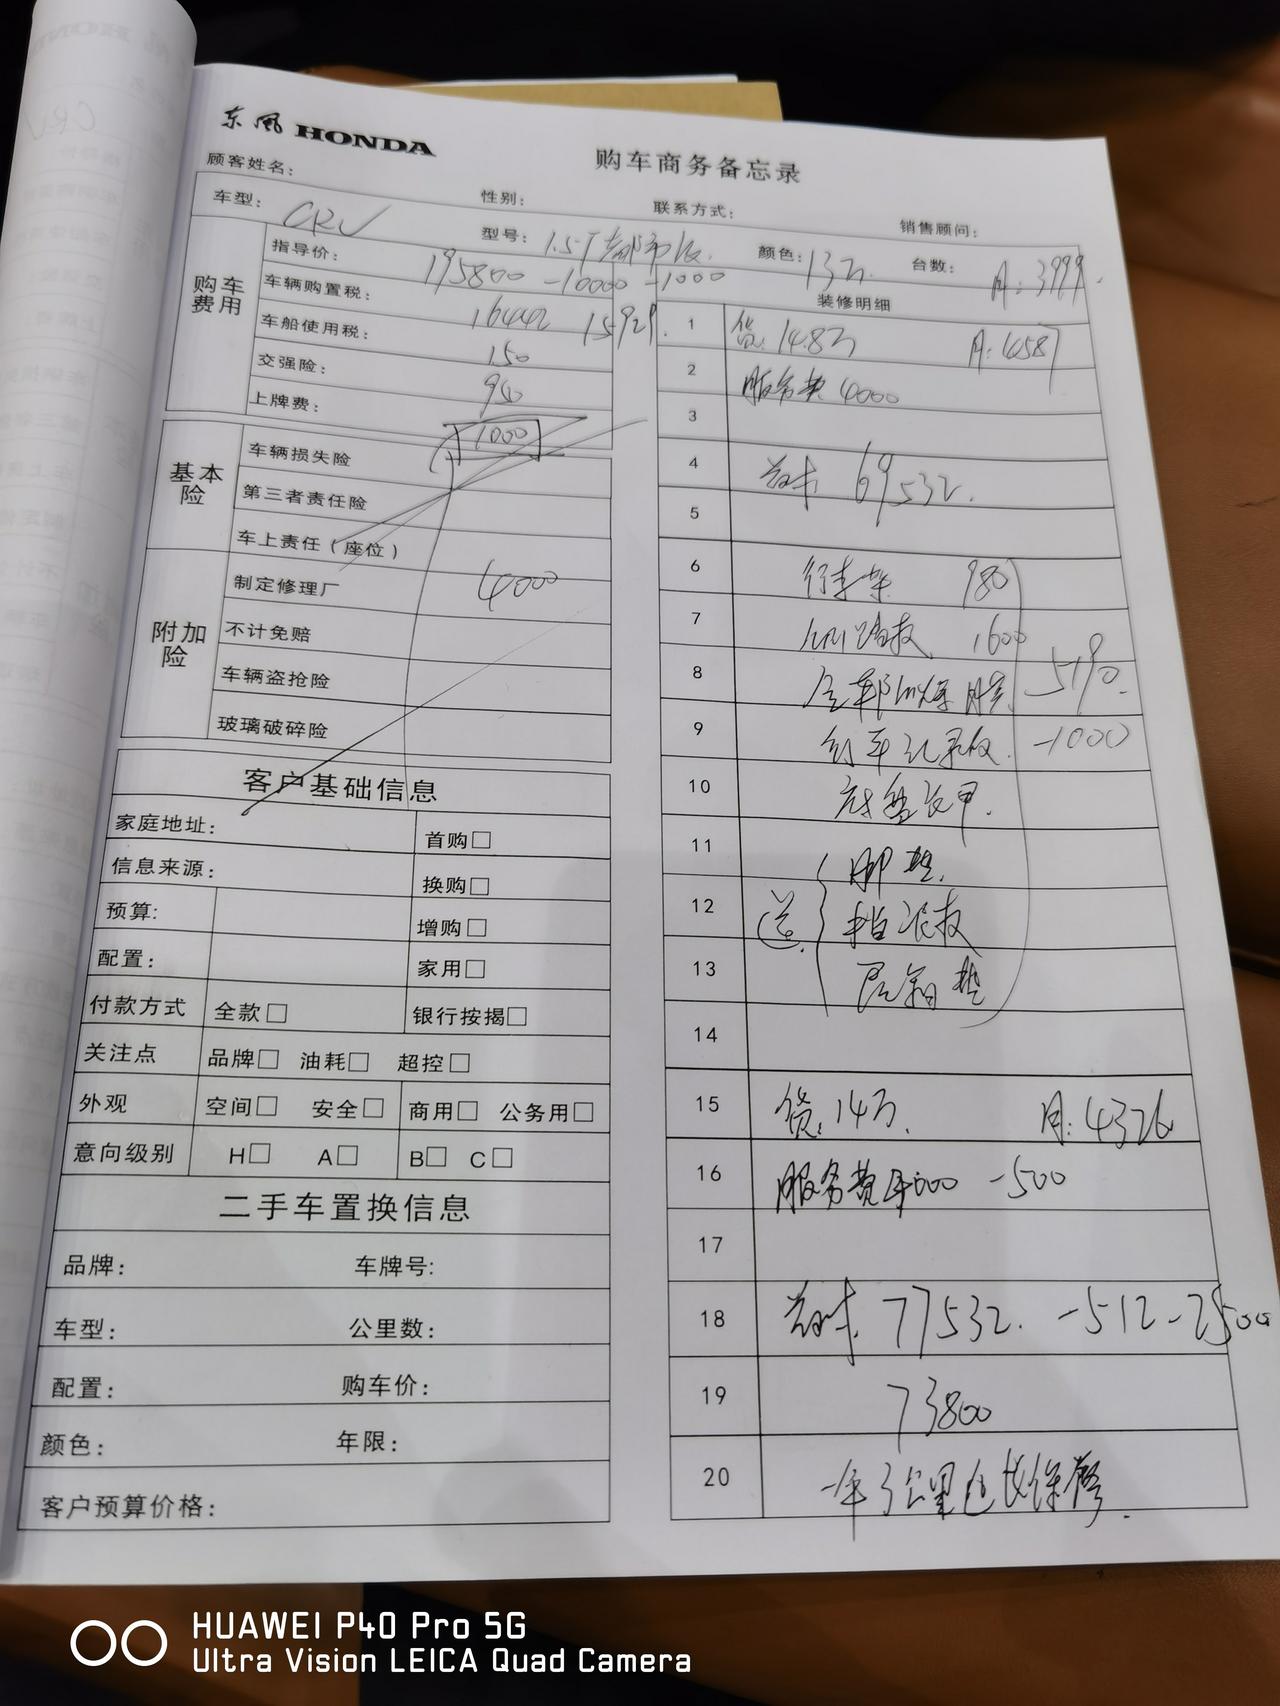 东风 HONDA
购车商务备忘录
顾客姓名： 性别： 联系方式： 销售顾问：
车型： CRV 型号： 1.5T都市版 颜色： 13万 台数： 月：3999
购车费用
指导价： 195800 -10000 -1000
车辆购置税： 16442 15929
车船使用税： 150
交强险： 950
上牌费： 1000
基本险
车辆损失险
第三者责任险
车上责任（座位）
附加险
制定修理厂 4000
不计免赔
车辆盗抢险
玻璃破碎险
客户基础信息
家庭地址： 首购□
信息来源： 换购□
预算: 增购□
配置： 家用□
付款方式 全款□ 银行按揭□
关注点 品牌□ 油耗□ 超控□
外观 空间□ 安全□ 商用□ 公务用□
意向级别 H□ A□ B□ C□
二手车置换信息
品牌： 车牌号:
车型： 公里数：
配置： 购车价：
颜色： 年限：
客户预算价格：
装修明细
1 贷：14.8万 月：4587
2 服务费 4000
3
4 69532
5
6 行李架 980
7 1600
8 5190
9 行车记录仪 -1000
10 底盘装甲
11 脚垫
12 送 挡泥板
13 后备箱垫
14
15 贷：14万 月：4326
16 服务费 4000 -500
17
18 77532 -512-2500
19 73800
20 一年3公里
HUAWEI P40 Pro 5G
Ultra Vision LEICA Quad Camera